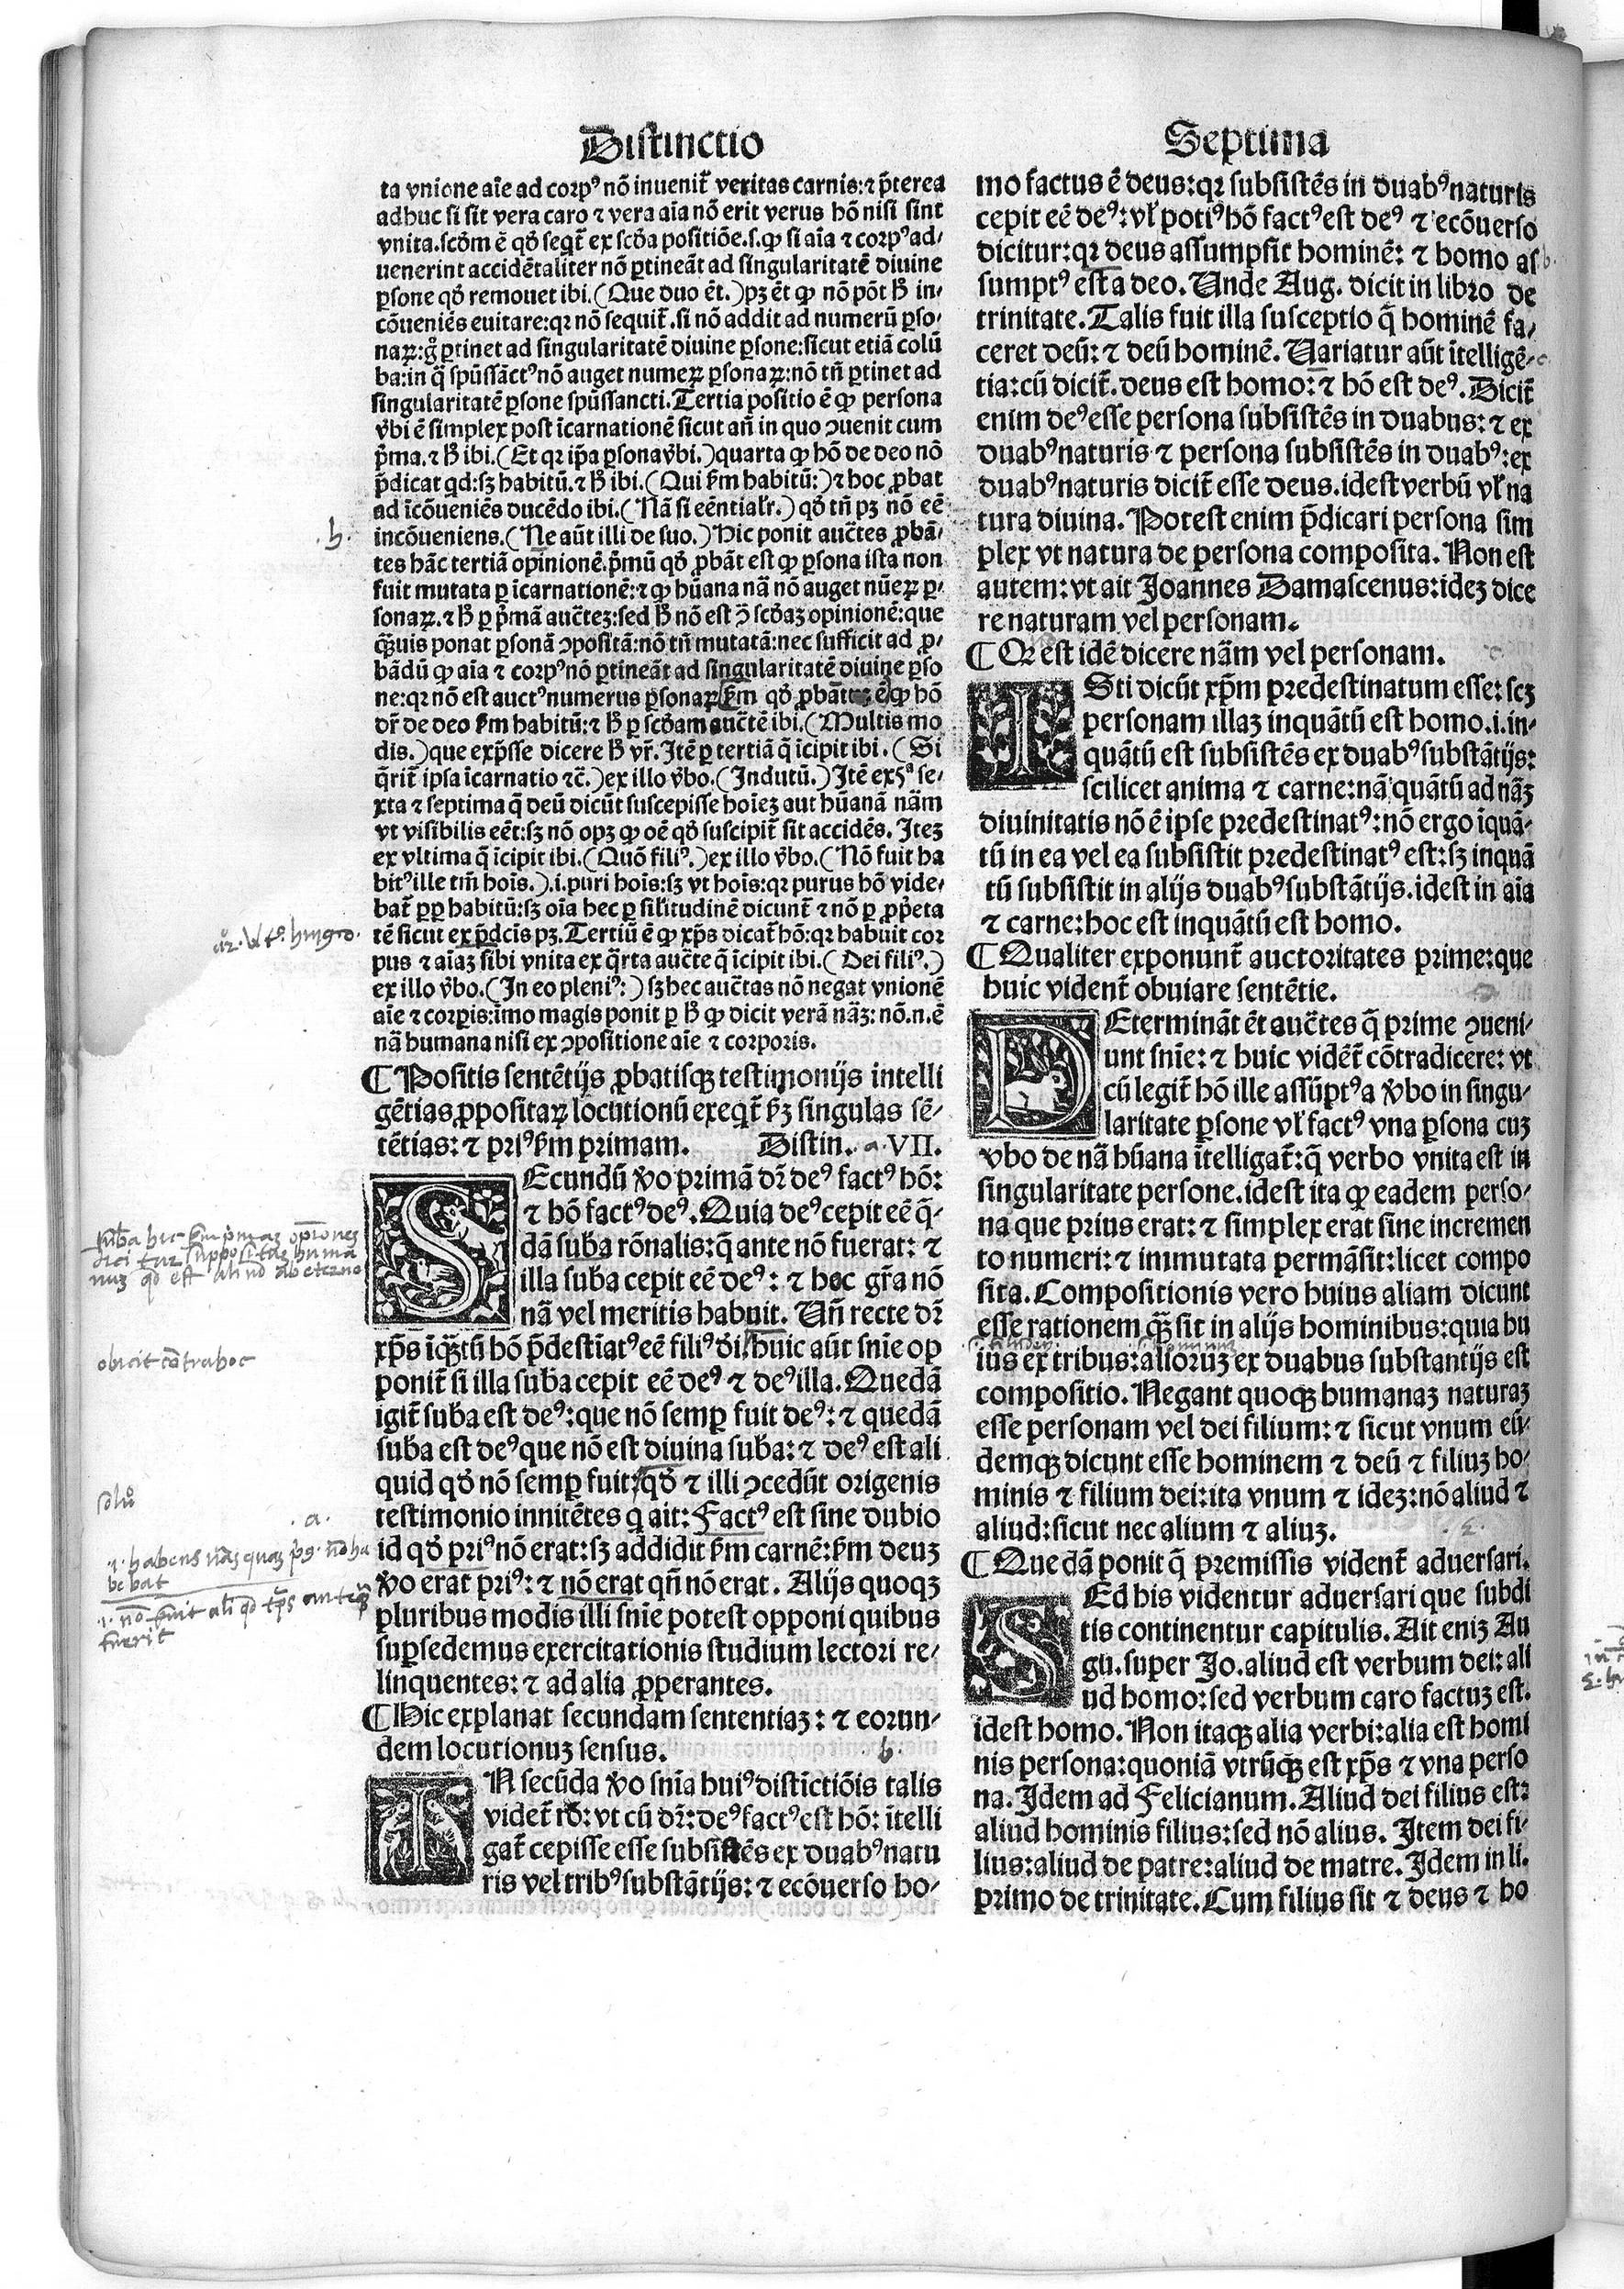 Distinctio
ta vnione aĩe ad corpꝰ nõ inuenit̃ veritas carnis: ⁊ p̃terea
adhuc si sit vera caro ⁊ vera aĩa nõ erit verus hõ nisi sint
vnita. scd̃m ẽ qd̃ seqt̃ ex scd̃a positiõe .s. ꝙ si aĩa ⁊ corpꝰ ad/
uenerint accidẽtaliter nõ ꝑtineãt ad singularitatẽ diuine
ꝑsone qd̃ remouet ibi. (Que duo ẽt.) pꝫ ẽt ꝙ nõ põt h̃ in/
cõueniẽs euitare: qꝛ nõ sequit̃. si nõ addit ad numerũ ꝑso/
naꝝ: g̊ ꝑtinet ad singularitatẽ diuine ꝑsone: sicut etiã colũ
ba: in q̃ spũssãctꝰ nõ auget numeꝝ ꝑsonaꝝ: nõ tñ ꝑtinet ad
singularitatẽ ꝑsone spũssancti. Tertia positio ẽ ꝙ persona
v̓bi ẽ simplex post ĩcarnationẽ sicut añ in quo ↄuenit cum
p̃ma. ⁊ h̃ ibi. (Et qꝛ ip̃a ꝑsona v̓bi.) quarta ꝙ hõ de deo nõ
p̃dicat qd: sꝫ habitũ. ⁊ h̃ ibi. (Qui s̃m habitũ:) ⁊ hoc ꝓbat
ad ĩcõueniẽs ducẽdo ibi. (Nã si eẽntialr̃.) qd̃ tñ pꝫ nõ eẽ
incõueniens. (Ne aũt illi de suo.) Hic ponit auc̃tes ꝓbã/
tes hãc tertiã opinionẽ. p̃mũ qd̃ ꝓbãt est ꝙ ꝑsona ista non
fuit mutata ꝑ ĩcarnationẽ: ⁊ ꝙ hũana nã nõ auget nũeꝝ ꝑ/
sonaꝝ. ⁊ h̃ ꝑ p̃mã auc̃teꝫ: sed h̃ nõ est ↄ̃ scd̃aꝫ opinionẽ: que
q̃ꝫuis ponat ꝑsonã ↄpositã: nõ tñ mutatã: nec sufficit ad ꝓ/
bãdũ ꝙ aĩa ⁊ corpꝰ nõ ꝑtineãt ad singularitatẽ diuine ꝑso
ne: qꝛ nõ est auctꝰ numerus ꝑsonaꝝ
dr̃ de deo s̃m habitũ: ⁊ h̃ ꝑ scd̃am auc̃tẽ ibi. (Multis mo
dis.) que exp̃sse dicere h̃ vr̃. Itẽ ꝑ tertiã q̃ ĩcipit ibi. (Si
q̃rit̃ ipsa ĩcarnatio ⁊c̃.) ex illo v̓bo. (Indutũ.) Itẽ ex 5ª se/
xta ⁊ septima q̃ deũ dicũt suscepisse hoĩeꝫ aut hũanã nãm
vt visibilis eẽt: sꝫ nõ opꝫ ꝙ oẽ qd̃ suscipit̃ sit accidẽs. Iteꝫ
ex vltima q̃ ĩcipit ibi. (Quõ filiꝰ.) ex illo v̓bo. (Nõ fuit ha
bitꝰ ille tm̃ hoĩs.) .i. puri hoĩs: sꝫ vt hoĩs: qꝛ purus hõ vide/
bat̃ ꝓp̃ habitũ: sꝫ oĩa hec ꝑ silĩtudinẽ dicunt̃ ⁊ nõ ꝑ ꝓp̃eta
tẽ sicut ex p̃dcis pꝫ. Tertiũ ẽ ꝙ xp̃s dicat̃ hõ: qꝛ habuit cor
pus ⁊ aĩaꝫ sibi vnita ex q̃rta auc̃te q̃ ĩcipit ibi. (Dei filiꝰ.)
ex illo v̓bo. (In eo pleniꝰ:) sꝫ hec auc̃tas nõ negat vnionẽ
aĩe ⁊ corpis: ĩmo magis ponit ꝑ h̃ ꝙ dicit verã nãꝫ: nõ .n. ẽ
nã humana nisi ex ↄpositione aĩe ⁊ corporis.
¶ Positis sentẽtijs ꝓbatisqꝫ testimonijs intelli
gẽtias ꝓpositaꝝ locutionũ exeqt̃ s̃ꝫ singulas sẽ/
tẽtias: ⁊ priꝰ s̃m primam. Distin. VII.
SEcundũ v̓o primã dr̃ deꝰ factꝰ hõ:
⁊ hõ factꝰ deꝰ. Quia deꝰ cepit eẽ q̃/
dã suba rõnalis: q̃ ante nõ fuerat: ⁊
illa suba cepit eẽ deꝰ: ⁊ hoc gr̃a nõ
nã vel meritis habuit. Uñ recte dr̃
xp̃s ĩq̃ꝫtũ hõ p̃destĩatꝰ eẽ filiꝰ dĩ huic aũt snĩe op
ponit̃ si illa suba cepit eẽ deꝰ ⁊ deꝰ illa. Quedã
igit̃ suba est deꝰ: que nõ semꝑ fuit deꝰ: ⁊ quedã
suba est deꝰ que nõ est diuina suba: ⁊ deꝰ est ali
quid qd̃ nõ semꝑ fuit: qd̃ ⁊ illi ↄcedũt origenis
testimonio innitẽtes q ait: Factꝰ est sine dubio
id qd̃ priꝰ nõ erat: sꝫ addidit s̃m carnẽ: s̃m deuꝫ
v̓o erat priꝰ: ⁊ nõ erat qñ nõ erat. Alijs quoqꝫ
pluribus modis illi snĩe potest opponi quibus
suꝑsedemus exercitationis studium lectori re/
linquentes: ⁊ ad alia ꝓperantes.
¶ Hic explanat secundam sententiaꝫ: ⁊ eorun/
dem locutionuꝫ sensus. b.
IN secũda v̓o snĩa huiꝰ distĩctiõis talis
videt̃ rõ: vt cũ dr̃: deꝰ factꝰ est hõ: ĩtelli
gat̃ cepisse esse subsistẽs ex duabꝰ natu
ris vel tribꝰ substãtijs: ⁊ ecõuerso ho/
Septima
mo factus ẽ deus: qꝛ subsistẽs in duabꝰ naturis
cepit eẽ deꝰ: vl̃ potiꝰ hõ factꝰ est deꝰ ⁊ ecõuerso
dicitur: qꝛ deus assumpsit hominẽ: ⁊ homo as
sumptꝰ est a deo. Unde Aug. dicit in libro de
trinitate. Talis fuit illa susceptio q̃ hominẽ fa/
ceret deũ: ⁊ deũ hominẽ. Uariatur aũt ĩtelligẽ/
tia: cũ dicit̃. deus est homo: ⁊ hõ est deꝰ. Dicit̃
enim deꝰ esse persona subsistẽs in duabus: ⁊ ex
duabꝰ naturis ⁊ persona subsistẽs in duabꝰ: ex
duabꝰ naturis dicit̃ esse deus. idest verbũ vl̃ na
tura diuina. Potest enim p̃dicari persona sim
plex vt natura de persona composita. Non est
autem: vt ait Joannes Damascenus: ideꝫ dice
re naturam vel personam.
¶ Qꝛ est idẽ dicere nãm vel personam.
ISti dicũt xp̃m predestinatum esse: scꝫ
personam illaꝫ inquãtũ est homo. i. in/
quãtũ est subsistẽs ex duabꝰ substãtijs:
scilicet anima ⁊ carne: nã quãtũ ad nãꝫ
diuinitatis nõ ẽ ipse predestinatꝰ: nõ ergo ĩquã/
tũ in ea vel ea subsistit predestinatꝰ est: sꝫ inquã
tũ subsistit in alijs duabꝰ substãtijs. idest in aĩa
⁊ carne: hoc est inquãtũ est homo.
¶ Qualiter exponunt̃ auctoritates prime: que
huic vident̃ obuiare sentẽtie.
DEterminãt ẽt auc̃tes q̃ prime ↄueni/
unt snĩe: ⁊ huic vidẽt̃ cõtradicere: vt
cũ legit̃ hõ ille assũptꝰ a v̓bo in singu/
laritate ꝑsone vl̃ factꝰ vna ꝑsona cuꝫ
v̓bo de nã hũana ĩtelligat̃: q̃ verbo vnita est in
singularitate persone. idest ita ꝙ eadem perso/
na que prius erat: ⁊ simplex erat sine incremen
to numeri: ⁊ immutata permãsit: licet compo
sita. Compositionis vero huius aliam dicunt
esse rationem q̃ꝫ sit in alijs hominibus: quia hu
ius ex tribus: alioruꝫ ex duabus substantijs est
compositio. Negant quoqꝫ humanaꝫ naturaꝫ
esse personam vel dei filium: ⁊ sicut vnum eũ/
demqꝫ dicunt esse hominem ⁊ deũ ⁊ filiuꝫ ho/
minis ⁊ filium dei: ita vnum ⁊ ideꝫ: nõ aliud ⁊
aliud: sicut nec alium ⁊ aliuꝫ.
¶ Quedã ponit q̃ premissis vident̃ aduersari.
SEd his videntur aduersari que subdi
tis continentur capitulis. Ait eniꝫ Au
gu. super Jo. aliud est verbum dei: ali
ud homo: sed verbum caro factuꝫ est.
idest homo. Non itaqꝫ alia verbi: alia est homi
nis persona: quoniã vtrũqꝫ est xp̃s ⁊ vna perso
na. Idem ad Felicianum. Aliud dei filius est:
aliud hominis filius: sed nõ alius. Item dei fi/
lius: aliud de patre: aliud de matre. Idem in li.
primo de trinitate. Cum filius sit ⁊ deus ⁊ ho
.b.
obicit cõtra hoc
.a.
be bat
fuerit